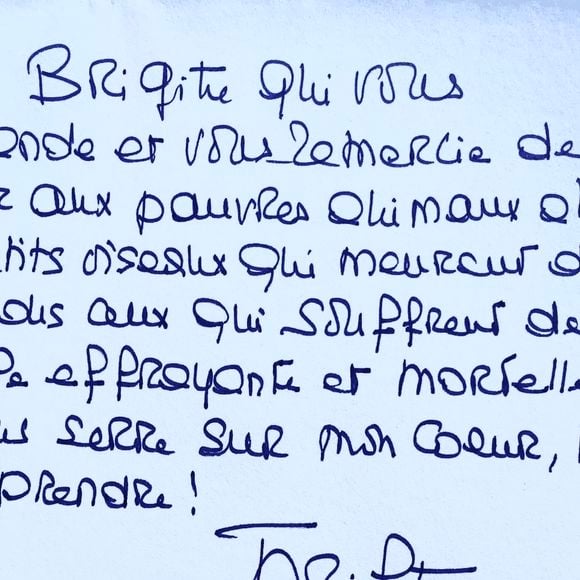 Brigitte qui vous
ende et vous remercie de
aux pauvres animaux
tits oiseaux qui meurent d
ous ceux qui souffrent de
effroyante et mortelle
us serre sur mon coeur,
prendre !